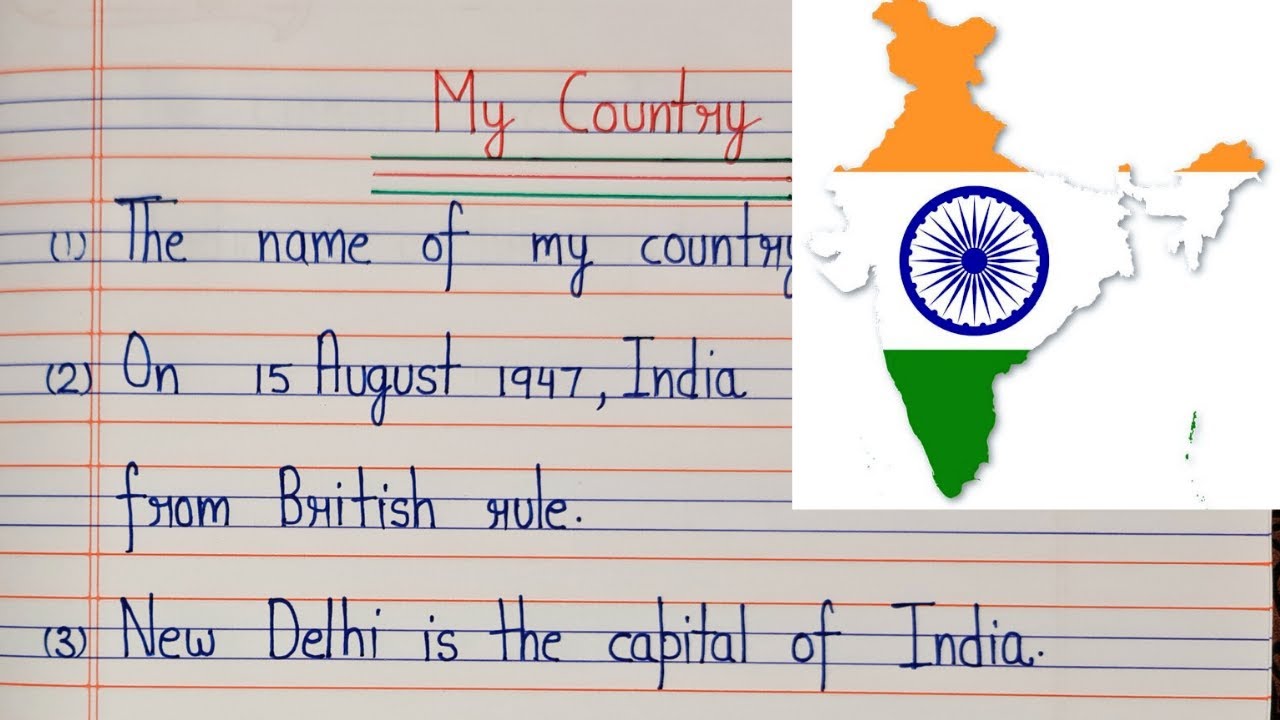 My Country
(1) The name of my country
(2) On 15 August 1947, India
from British rule.
(3) New Delhi is the capital of India.